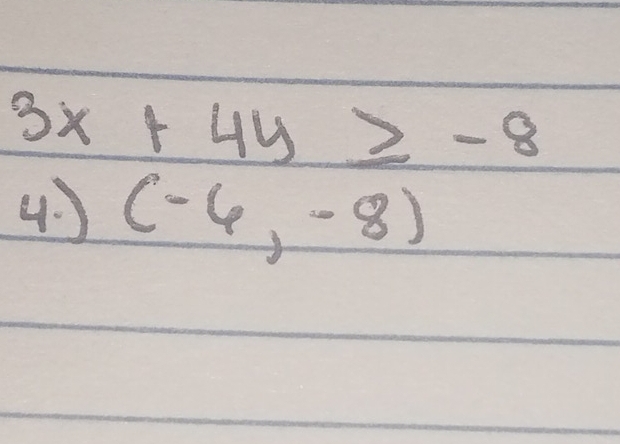 3x + 4y ≥ -8
4.) (-6, -8)